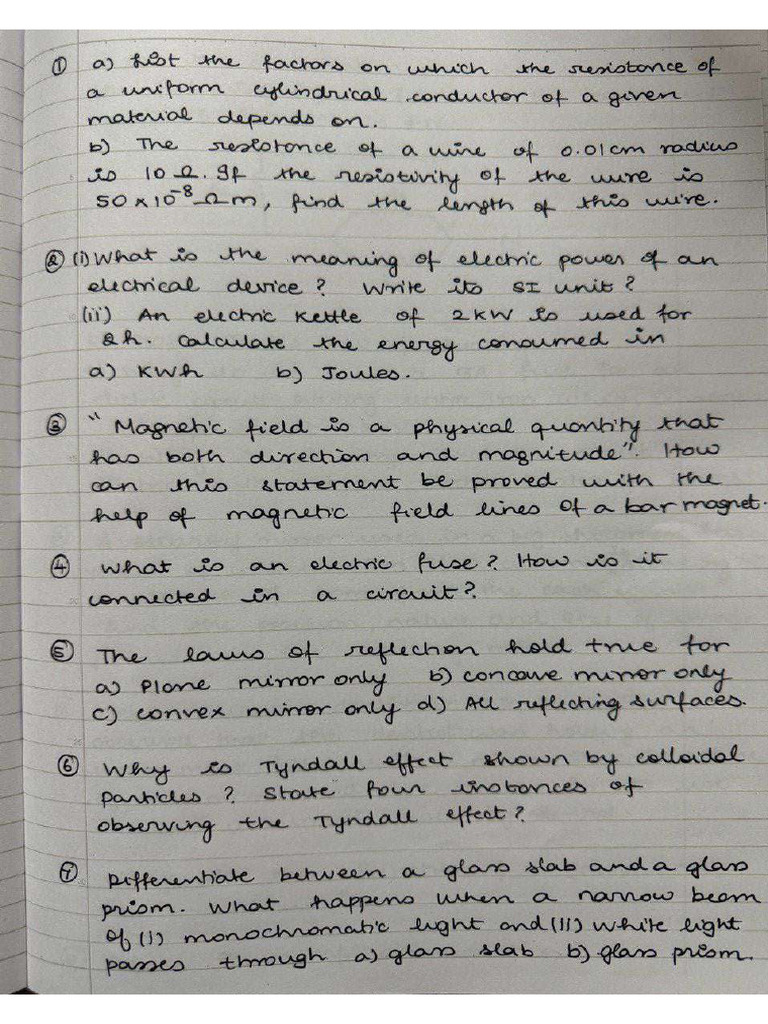 ① a) List the factors on which the resistance of
a uniform cylindrical conductor of a given
material depends on.
b) The resistance of a wire of 0.01cm radius
is 10 Ω. If the resistivity of the wire is
50 × 10⁻⁸ Ωm, find the length of this wire.
② (i) What is the meaning of electric power of an
electrical device? Write its SI unit?
(ii) An electric kettle of 2KW is used for
2h. Calculate the energy consumed in
a) KWh b) Joules.
③ "Magnetic field is a physical quantity that
has both direction and magnitude". How
can this statement be proved with the
help of magnetic field lines of a bar magnet.
④ What is an electric fuse? How is it
connected in a circuit?
⑤ The laws of reflection hold true for
a) Plane mirror only b) concave mirror only
c) convex mirror only d) All reflecting surfaces.
⑥ Why is Tyndall effect shown by colloidal
particles? State four instances of
observing the Tyndall effect?
⑦ Differentiate between a glass slab and a glass
prism. What happens when a narrow beam
of (I) monochromatic light and (II) white light
passes through a) glass slab b) glass prism.